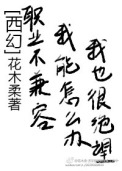 [西幻]
花木柔著
职业不兼容
我能怎么办
我也很绝望